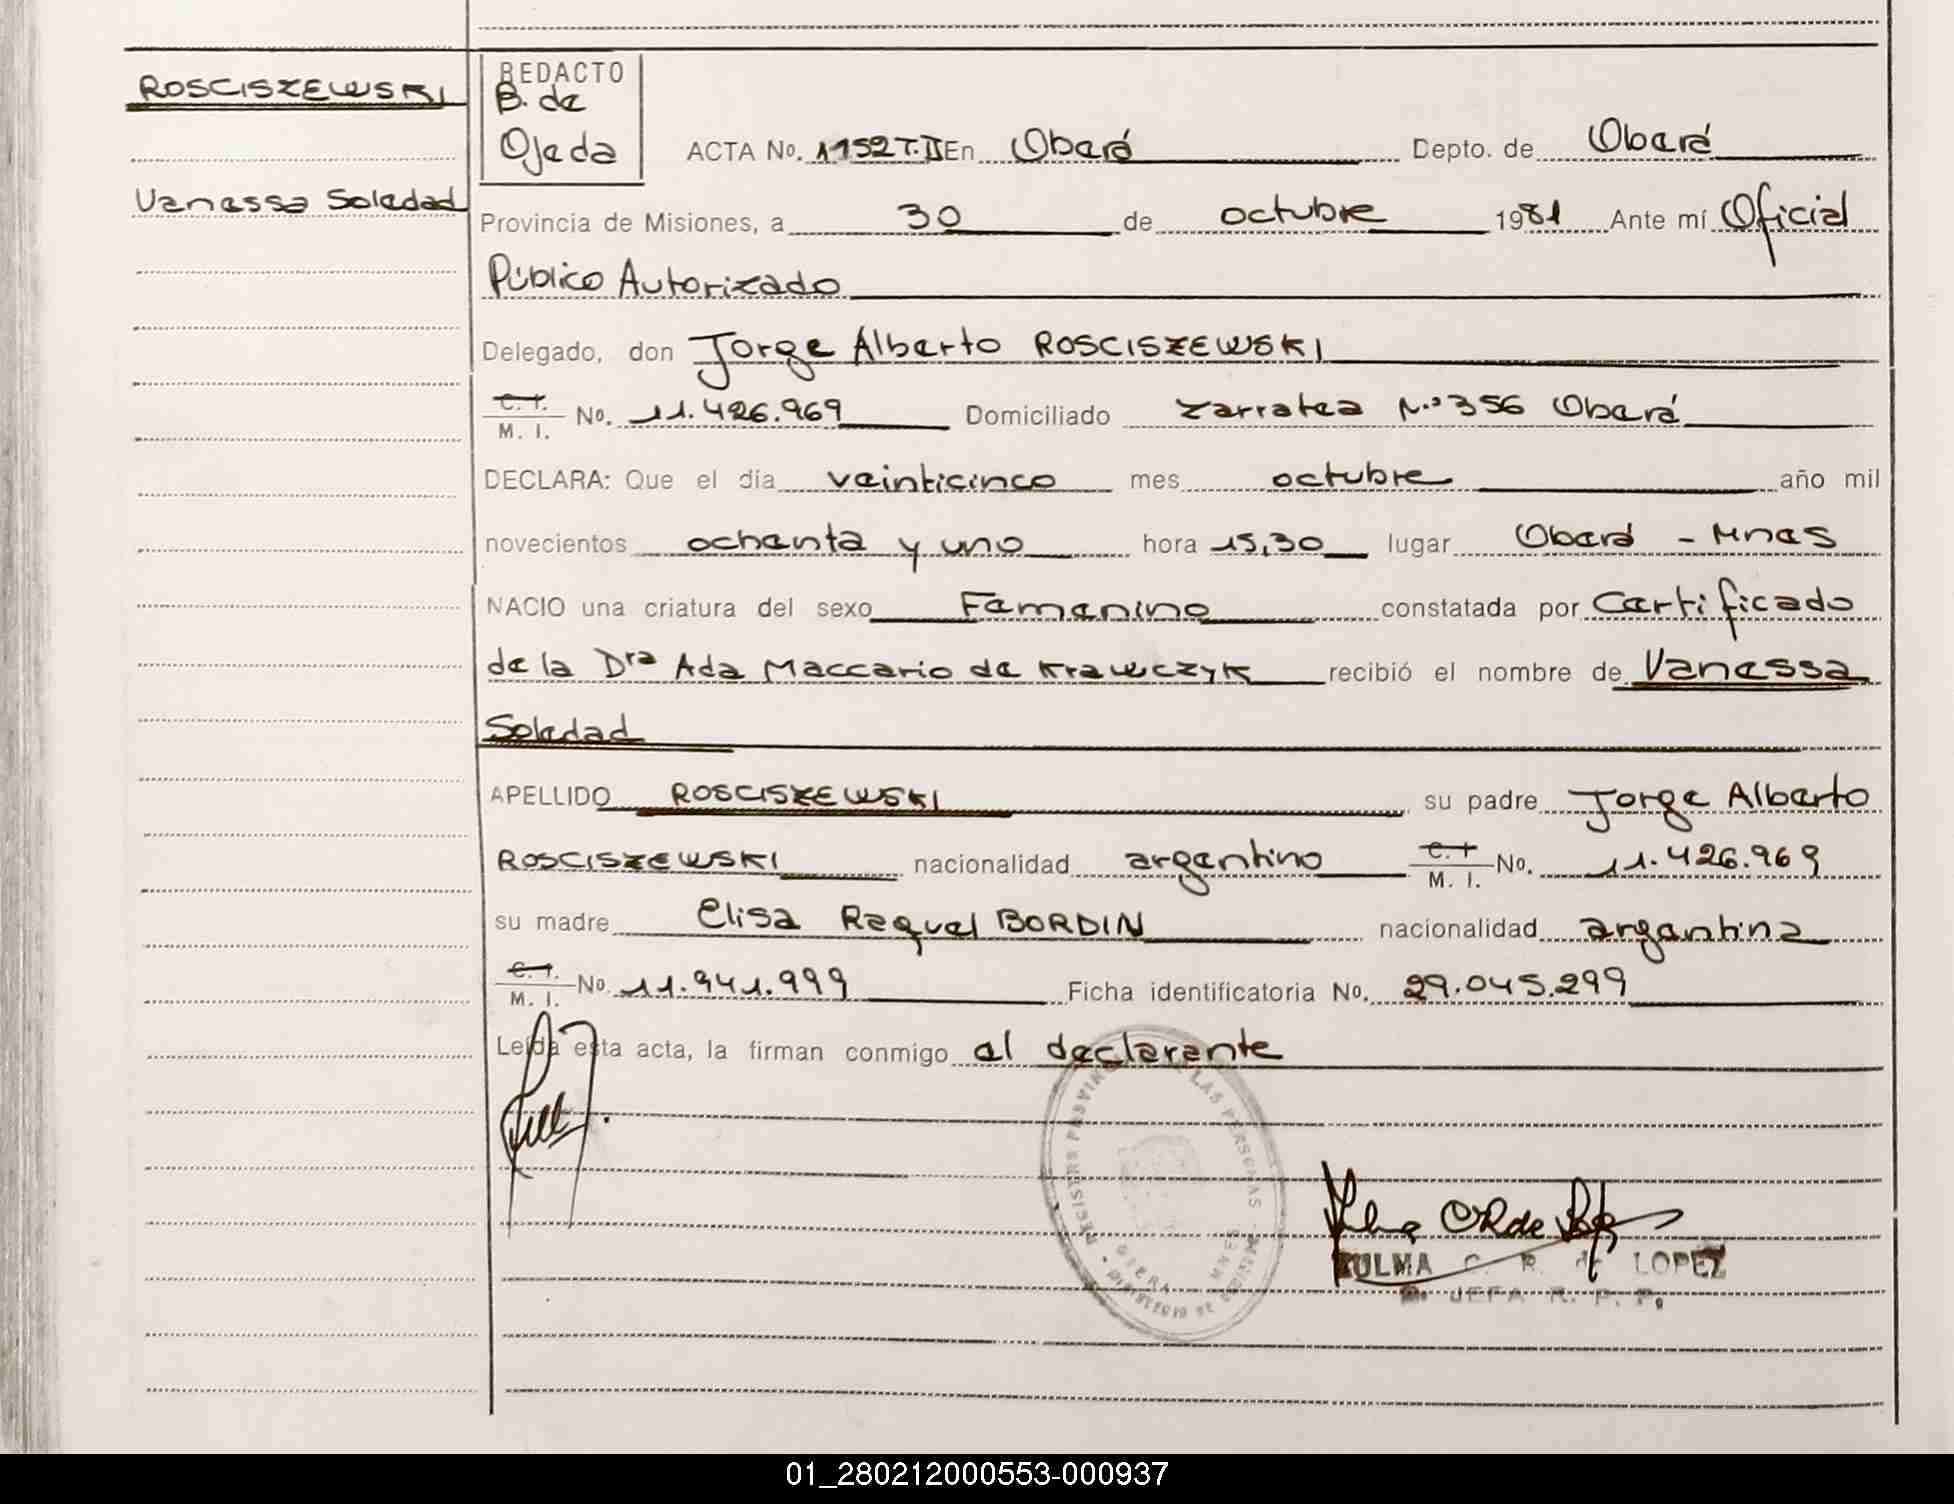 ROSCISZEWSKI
Vanessa Soledad
REDACTO
B. de
Ojeda
ACTA No. 1152 T.II En Oberá Depto. de Oberá
Provincia de Misiones, a 30 de octubre 1981 Ante mí Oficial
Público Autorizado
Delegado, don Jorge Alberto ROSCISZEWSKI
C. I. M. I. No. 11.426.969 Domiciliado Zarratea N.º 356 Oberá
DECLARA: Que el día veinticinco mes octubre año mil
novecientos ochenta y uno hora 15,30 lugar Oberá - Mnes
NACIO una criatura del sexo Femenino constatada por Certificado
de la Dra Ada Maccario de Krawczyk recibió el nombre de Vanessa
Soledad
APELLIDO ROSCISZEWSKI su padre Jorge Alberto
ROSCISZEWSKI nacionalidad argentino C. I. M. I. No. 11.426.969
su madre Elisa Raquel BORDIN nacionalidad argentina
C. I. M. I. No. 11.941.999 Ficha identificatoria No. 29.045.299
Leída esta acta, la firman conmigo el declarante
LAS PERSONAS
OBERA MNES
ZULMA C. R. de LOPEZ
JEFA R. P. P.
01_280212000553-000937